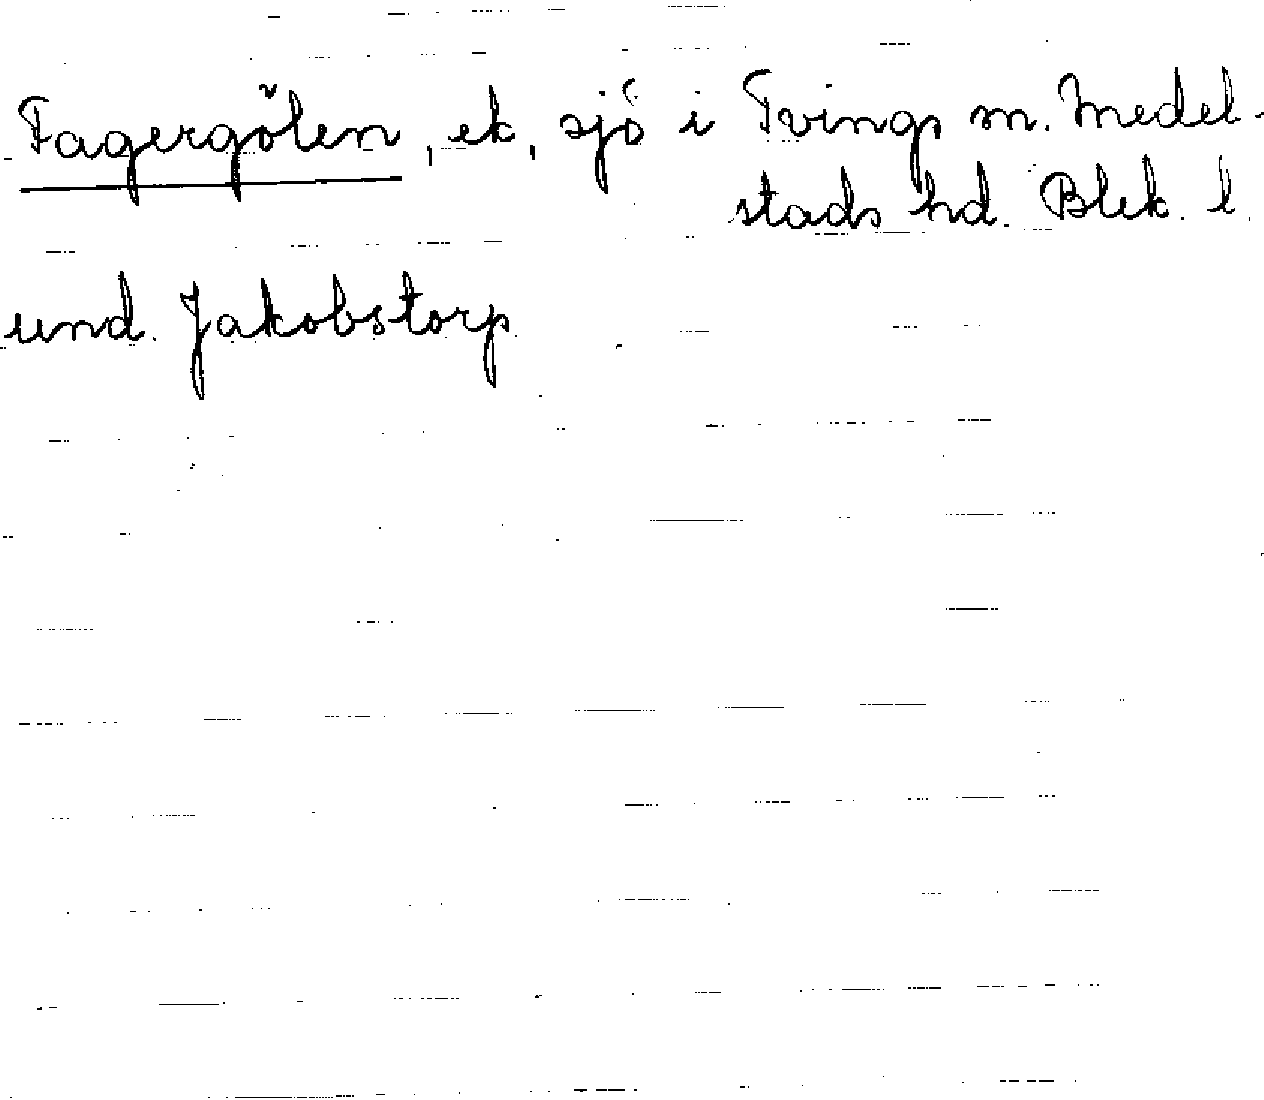 Fagergölen, ek, sjö i Tvings sn. Medel-
stads hd. Blek. l.
und. Jakobstorp.